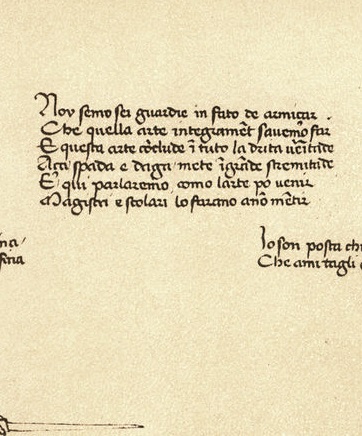 Noy semo sei guardie in fato de armiçar.
Che quella arte integramẽt savemo far
E questa arte cõclude ĩ tuto la drita
Açа spada e daga mete ĩ grãde stremitade
E qui parlaremo como larte po venir
Magistri e scolari lo farano ano mẽtir
Io son posta
Che ami tagli